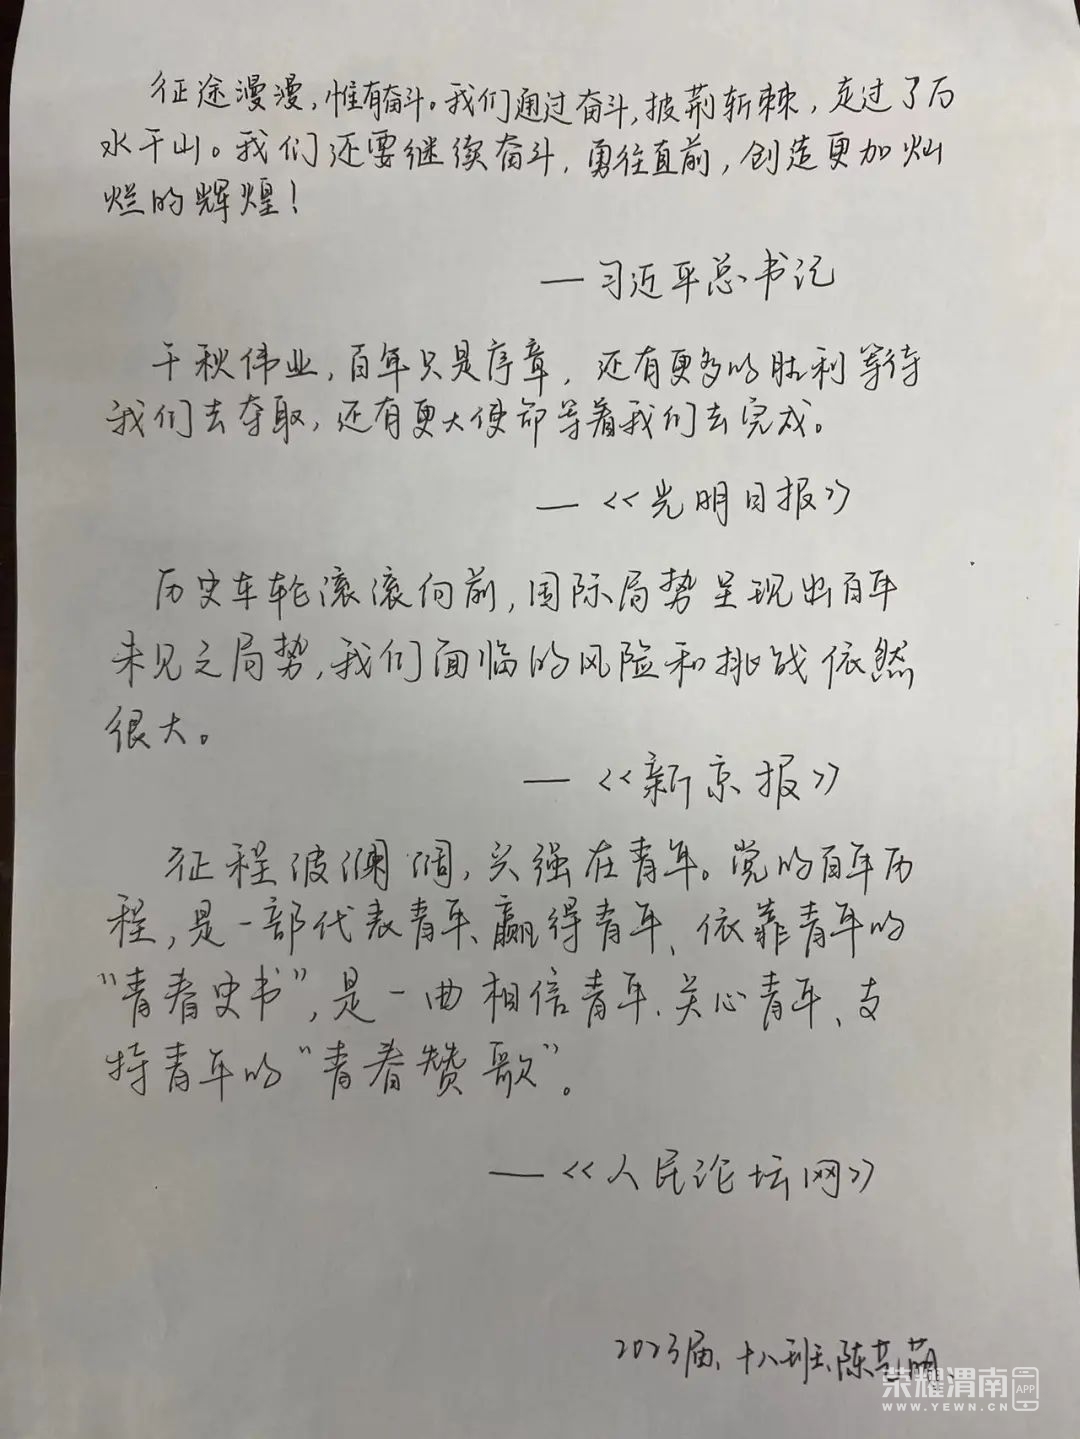 征途漫漫，惟有奋斗。我们通过奋斗，披荆斩棘，走过了万
水千山。我们还要继续奋斗，勇往直前，创造更加灿
烂的辉煌！
—习近平总书记
千秋伟业，百年只是序章，还有更多的胜利等待
我们去夺取，还有更大使命等着我们去完成。
—《光明日报》
历史车轮滚滚向前，国际局势呈现出百年
未见之局势，我们面临的风险和挑战依然
很大。
—《新京报》
征程波澜阔，兴强在青年。党的百年历
程，是一部代表青年、赢得青年、依靠青年的
“青春史书”，是一曲相信青年、关心青年、支
持青年的“青春赞歌”。
—《人民论坛网》
2023届、十八班、陈艺萌
荣耀渭南 APP
WWW.YEWN.CN